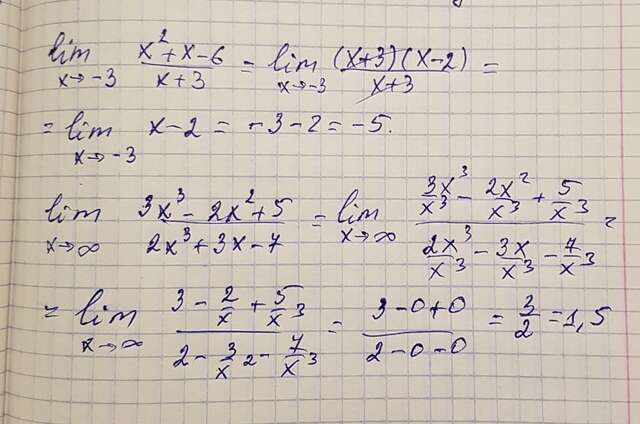 lim x→-3 (x²+x-6)/(x+3) = lim x→-3 (x+3)(x-2)/(x+3) =
= lim x→-3 x-2 = -3-2 = -5.
lim x→∞ (3x³-2x²+5)/(2x³+3x-7) = lim x→∞ (3x³/x³ - 2x²/x³ + 5/x³)/(2x³/x³ - 3x/x³ - 7/x³) =
= lim x→∞ (3 - 2/x + 5/x³)/(2 - 3/x² - 7/x³) = (3-0+0)/(2-0-0) = 3/2 = 1,5